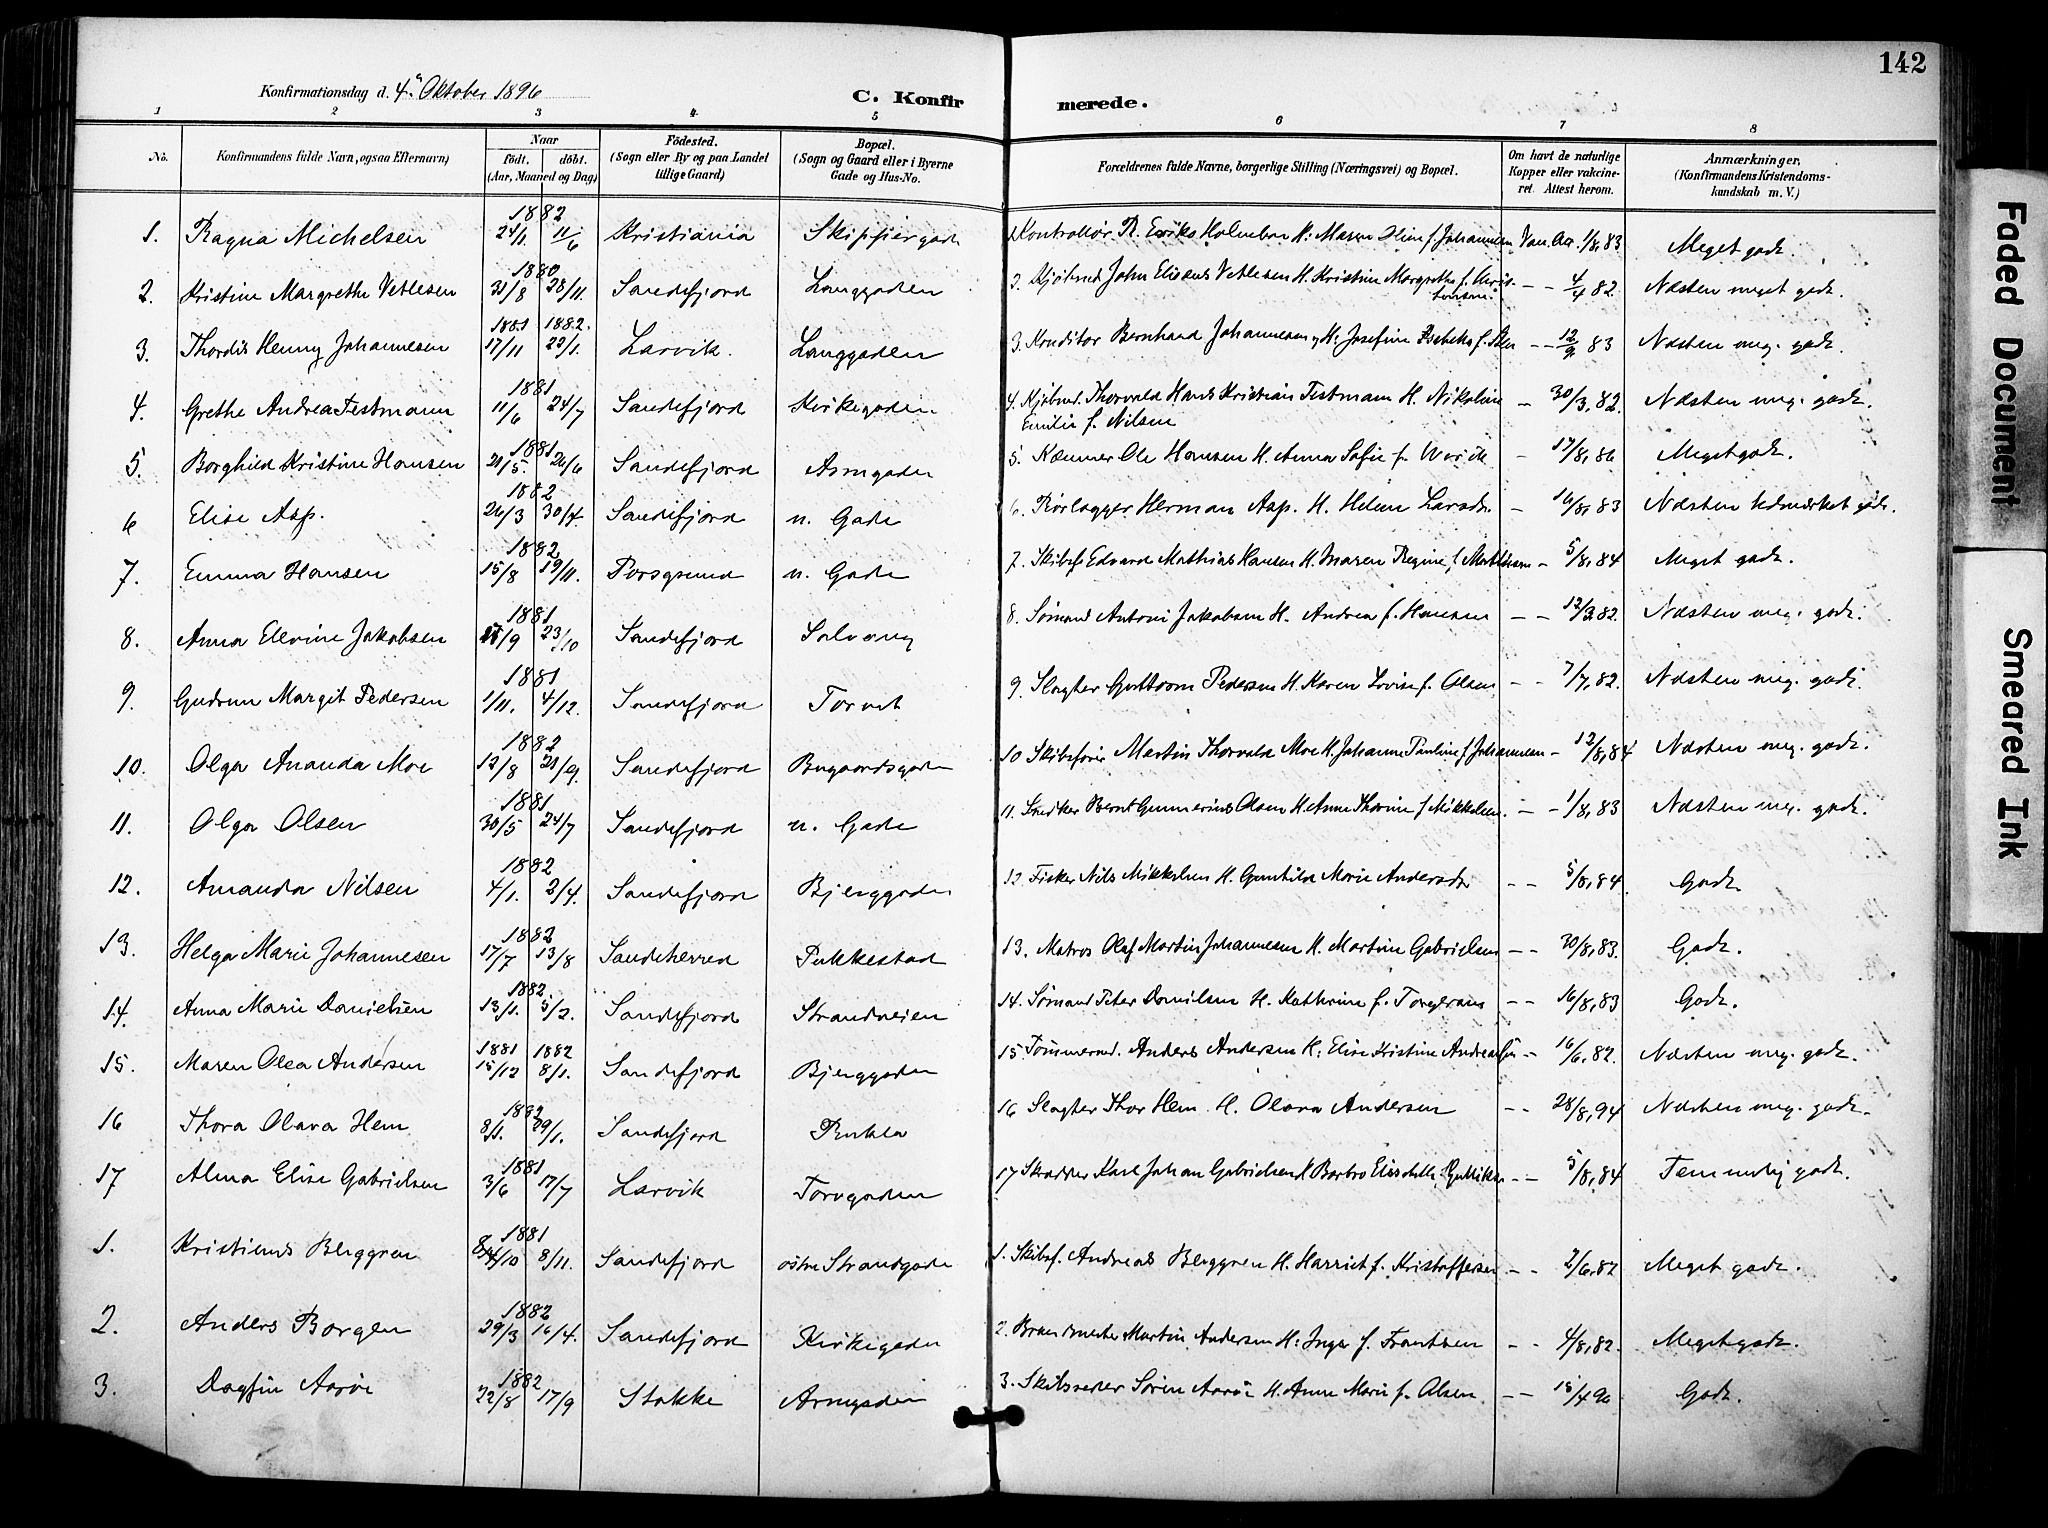 142
Konfirmationsdag d. 4. Oktober 1896
C. Konfirmerede.
1 2 3 4 5 6 7 8
No. Konfirmandens fulde Navn, ogsaa Efternavn) Naar født. døbt. (Aar, Maaned og Dag) Födested. (Sogn eller By og paa Landet tillige Gaard) Bopæl. (Sogn og Gaard eller i Byerne Gade og Hus-No. Forældrenes fulde Navne, borgerlige Stilling (Næringsvei) og Bopæl. Om havt de naturlige Kopper eller vakcineret. Attest herom. Anmærkninger, (Konfirmandens Kristendomskundskab m. V.)
1. Ragna Michelsen 1882 24/1. 11/6 Kristiania Skippergade Kontrollør R. Meget godt.
2. Kristine Margrethe Vetlesen 1880 31/8 28/11. Sandefjord Langgaden 2. Kjøbmd John Vetlesen H. Kristine Margrethe f. – – 4/4 82. Næsten meget godt.
3. Thordis Henny Johannesen 1881 17/11 1882. 22/1. Larvik. Langgaden 3. Konditor Bernhard Johannesen, H. Josefine f. – – 12/9 83 Næsten meg. godt.
4. Grethe Andrea Testmann 1881 11/6 24/7 Sandefjord Kirkegaden 4. Kjøbmd. Thorvald Hans Kristian Testmann H. Nikoline Emilie f. Nilsen – 30/3, 82. Næsten meg. godt.
5. Borghild Kristine Hansen 1881 21/5. 26/6 Sandefjord 5. Kæmner Ole Hansen H. Anna Sofie f. – 17/8, 86 Meget godt.
6 Elise Asp. 1882 26/3 30/4. Sandefjord n. Gade 6. Rørlægger Herman Asp. H. Helene Larsdr. – 16/8, 83 Næsten udmærket godt.
7. Emma Hansen 1882 15/8 19/11. Porsgrund n. Gade 7. Skibsf. Edvard Mathias Hansen H. Maren Regine f. – 5/8, 84 Meget godt.
8. Anna Elevine Jakobsen 1881 /9 23/10 Sandefjord Solvang 8. Sømand Antoni Jakobsen H. Andrea f. Hansen – – 12/3 82. Næsten meg. godt.
9. Gudrun Margit Pedersen 1881 1/11. 4/12. Sandefjord Torvet 9. Slagter Guttorm Pedersen H. Karen Lovise f. Olsen – – 7/7, 82. Næsten meg. godt.
10. Olga Ananda Moe 1882 12/8 21/9. Sandefjord Bugaardsgaden 10 Skibsfører Martin Thorvald Moe H. Johanne Pauline f. Johannesen – 12/8, 84 Næsten meg. godt.
11. Olga Olsen 1881 30/5 24/7 Sandefjord n. Gade 11. Snedker Bernt Gunnerius Olsen H. Anne Thorine f. Mikkelsen. – – 1/8, 83 Næsten meg. godt.
12. Amanda Nilsen 1882 4/1. 2/4. Sandefjord Bjerggaden 12. Fisker Nils Mikkelsen H. Gunhild Marie Andersdr – – 5/8, 84. Godt
13. Helga Marie Johannesen 1882 17/7 13/8 Sandeherred Pukkestad 13. Matros Olaf Martin Johannesen H. Martine Gabrielsen – – 30/8, 83. Godt.
14. Anna Marie Danielsen 1882. 13/1. 5/2. Sandefjord Strandveien 14. Sømand Peter Danielsen H. Kathrine f. Torgersen – – 16/8, 83 Godt.
15. Maren Olea Andersen 1881 15/12 1882 8/1. Sandefjord Bjerggaden 15. Tømmermd. Anders Andersen H. Elise Kristine – – 16/6, 82. Næsten meg. godt.
16 Thora Olava Hem 1882 8/1. 29/1. Sandefjord Pukla 16 Slagter Thor Hem. H. Olava Andersen – – 28/8, 94 Næsten meg. godt.
17 Alma Elise Gabrielsen 1881 3/6 17/7 Larvik Torvgaden 17 Skrædder Karl Johan Gabrielsen H. Barbro – – 5/8, 84 Temmelig godt.
1. Kristiens Berggren 1881 /10 8/11. Sandefjord østre Strandgade 1. Skibsf. Andreas Berggren H. Harriet f. Kristoffersen – – 2/6, 82 Meget godt.
2. Anders Borgen 1882 29/3 16/4. Sandefjord Kirkegaden 2. Brandmester Martin Andersen H. Inger f. Frantsen – – 4/8, 82. Meget godt.
3. Dagfin Aarøe 1882 22/8 17/9 Stokke 3. Skibsreder Søren Aarøe H. Anne Marie f. Olsen – – 15/4 96 Godt.
Faded Document
Smeared Ink